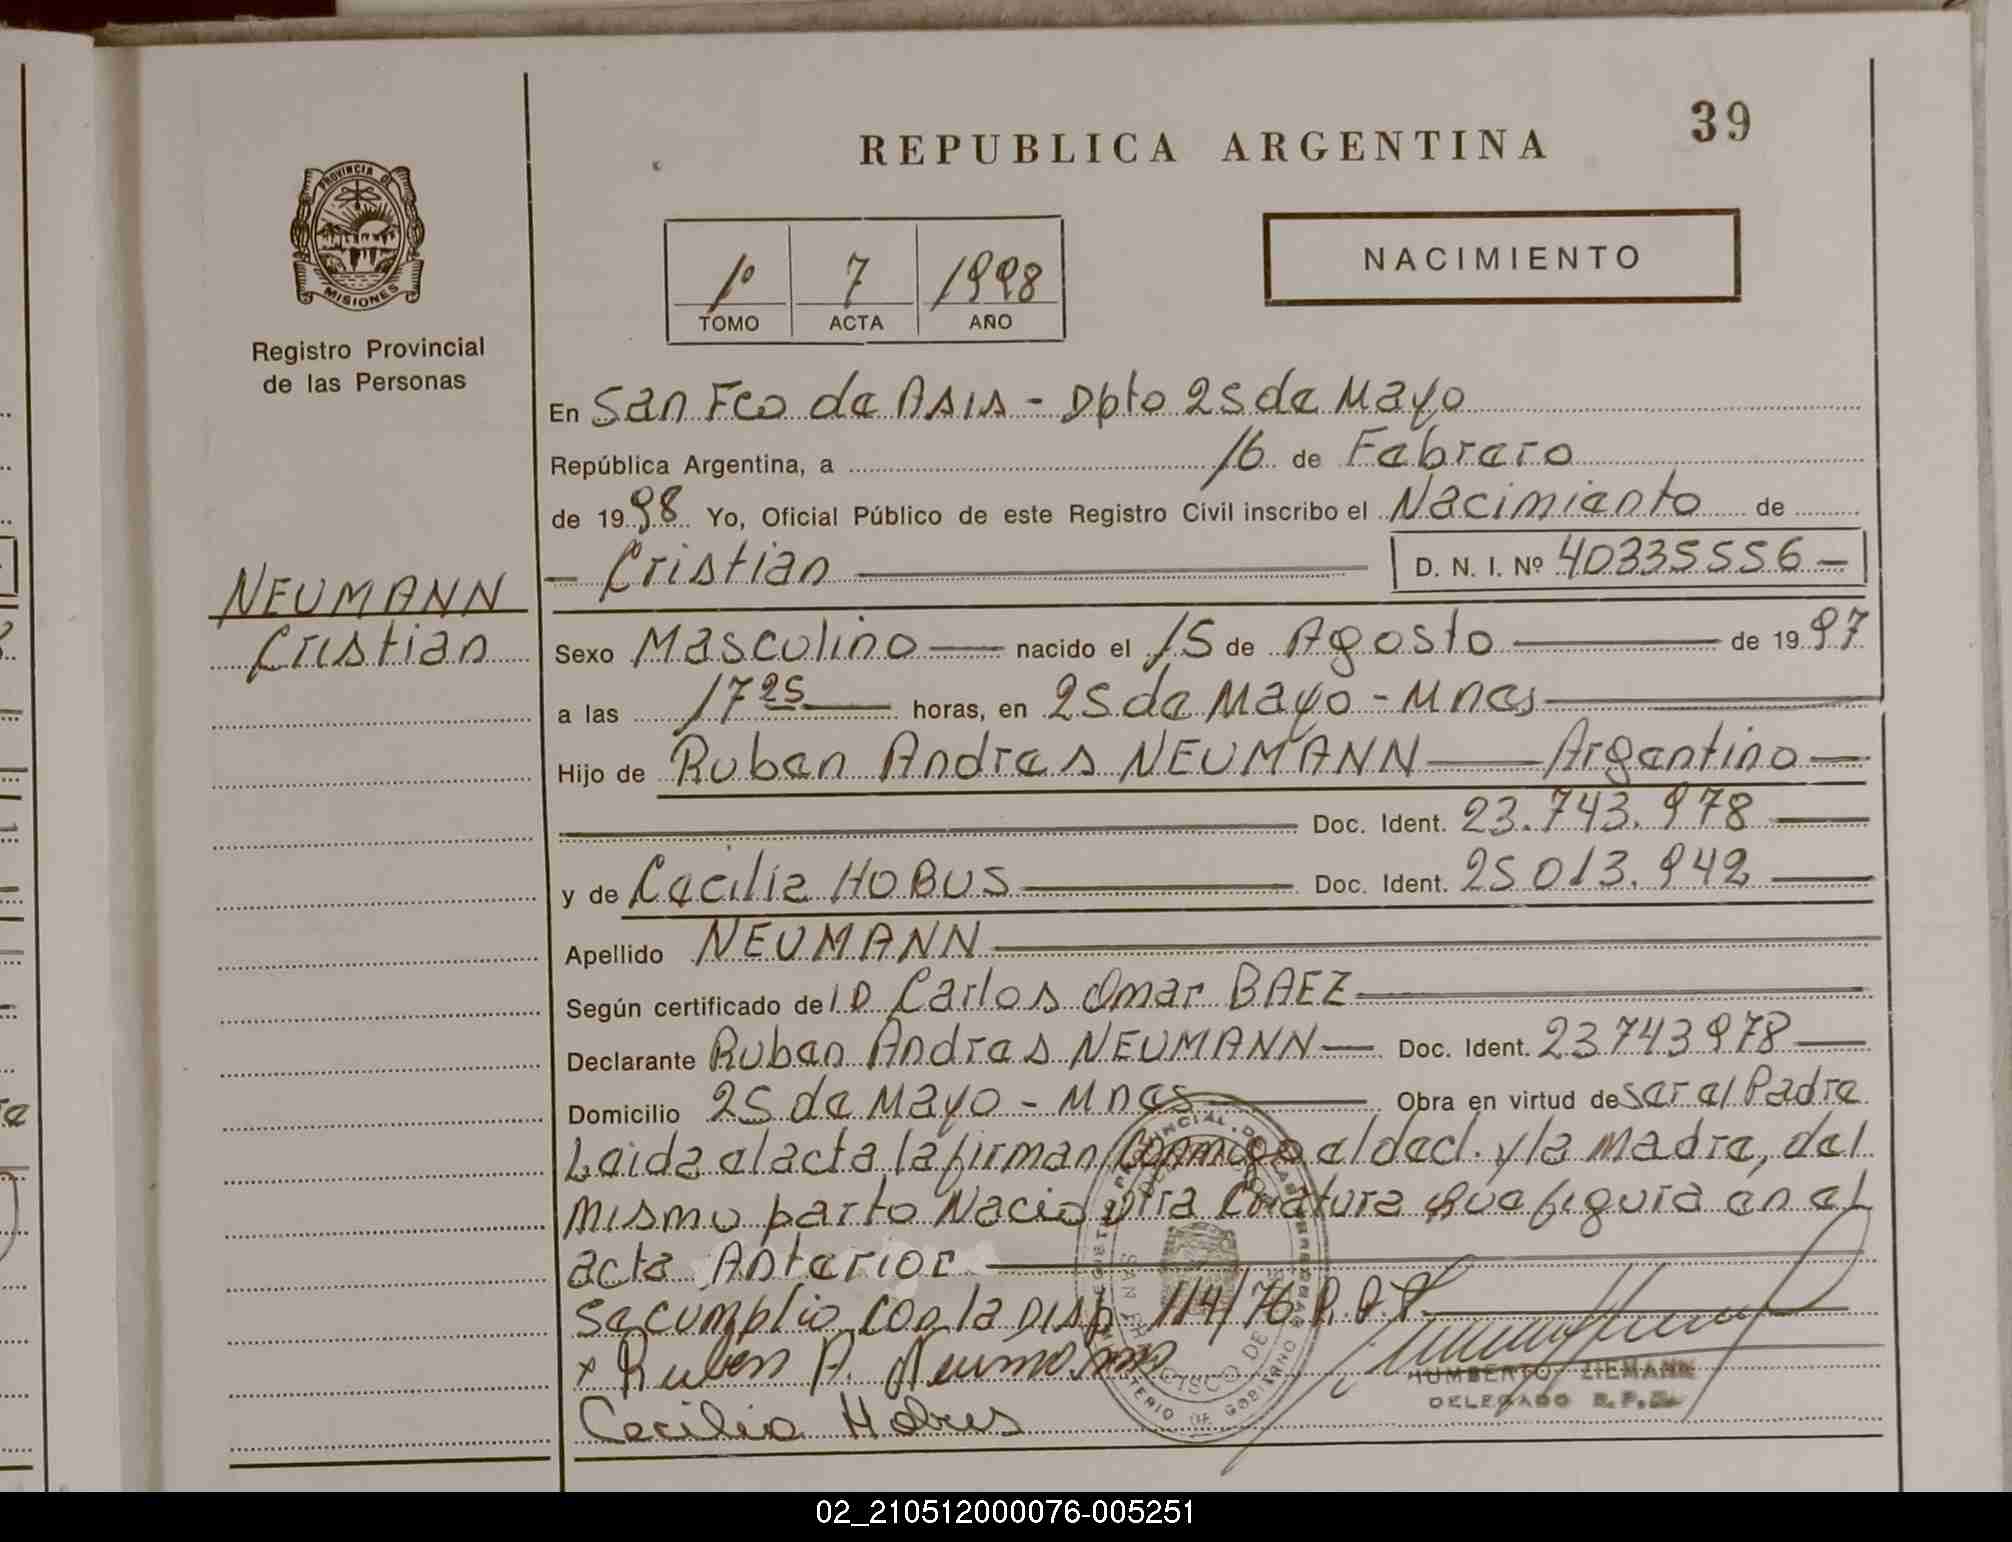 39
REPUBLICA ARGENTINA
PROVINCIA DE
MISIONES
Registro Provincial
de las Personas
1º 7 1998
TOMO ACTA AÑO
NACIMIENTO
En San Fco de Asis - Dpto 25 de Mayo
República Argentina, a 16 de Febrero
de 1998 Yo, Oficial Público de este Registro Civil inscribo el Nacimiento de
- Cristian D. N. I. Nº 40335556 -
NEUMANN
Cristian
Sexo Masculino nacido el 15 de Agosto de 1997
a las 17 25 horas, en 25 de Mayo - Mnes
Hijo de Ruben Andres NEUMANN Argentino
Doc. Ident. 23.743.978
y de Cecilia HOBUS Doc. Ident. 25013.942
Apellido NEUMANN
Según certificado de Carlos Omar BAEZ
Declarante Ruben Andres NEUMANN Doc. Ident. 23743978
Domicilio 25 de Mayo - Mnes Obra en virtud de ser el Padre
Leida el acta la firman Conmigo el decl. y la Madre, del
mismo parto Nacio otra Criatura que figura en el
acta Anterior
Se cumplio con la Disp 114/76
x Ruben A. Neumann
Cecilia Hobus
HUMBERTO ZIEMANN
DELEGADO R.P.
02_210512000076-005251